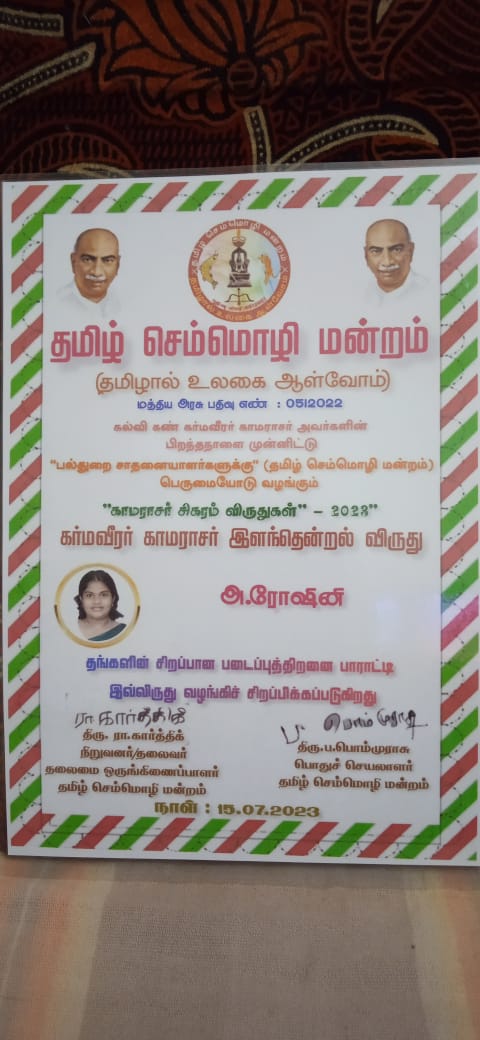 தமிழ் செம்மொழி மன்றம்
தமிழால் உலகை ஆள்வோம்
தமிழ் செம்மொழி மன்றம்
(தமிழால் உலகை ஆள்வோம்)
மத்திய அரசு பதிவு எண் : 05|2022
கல்வி கண் கர்மவீரர் காமராசர் அவர்களின்
பிறந்தநாளை முன்னிட்டு
"பல்துறை சாதனையாளர்களுக்கு" (தமிழ் செம்மொழி மன்றம்)
பெருமையோடு வழங்கும்
"காமராசர் சிகரம் விருதுகள்" - 2023"
கர்மவீரர் காமராசர் இளந்தென்றல் விருது
அ.ரோஷினி
தங்களின் சிறப்பான படைப்புத்திறனை பாராட்டி
இவ்விருது வழங்கிச் சிறப்பிக்கப்படுகிறது
ரா கார்த்திக்
திரு. ரா.கார்த்திக்
நிறுவனர்/தலைவர்
தலைமை ஒருங்கிணைப்பாளர்
தமிழ் செம்மொழி மன்றம்
ப. பொம்முராசு
திரு.ப.பொம்முராசு
பொதுச் செயலாளர்
தமிழ் செம்மொழி மன்றம்
நாள் : 15.07.2023